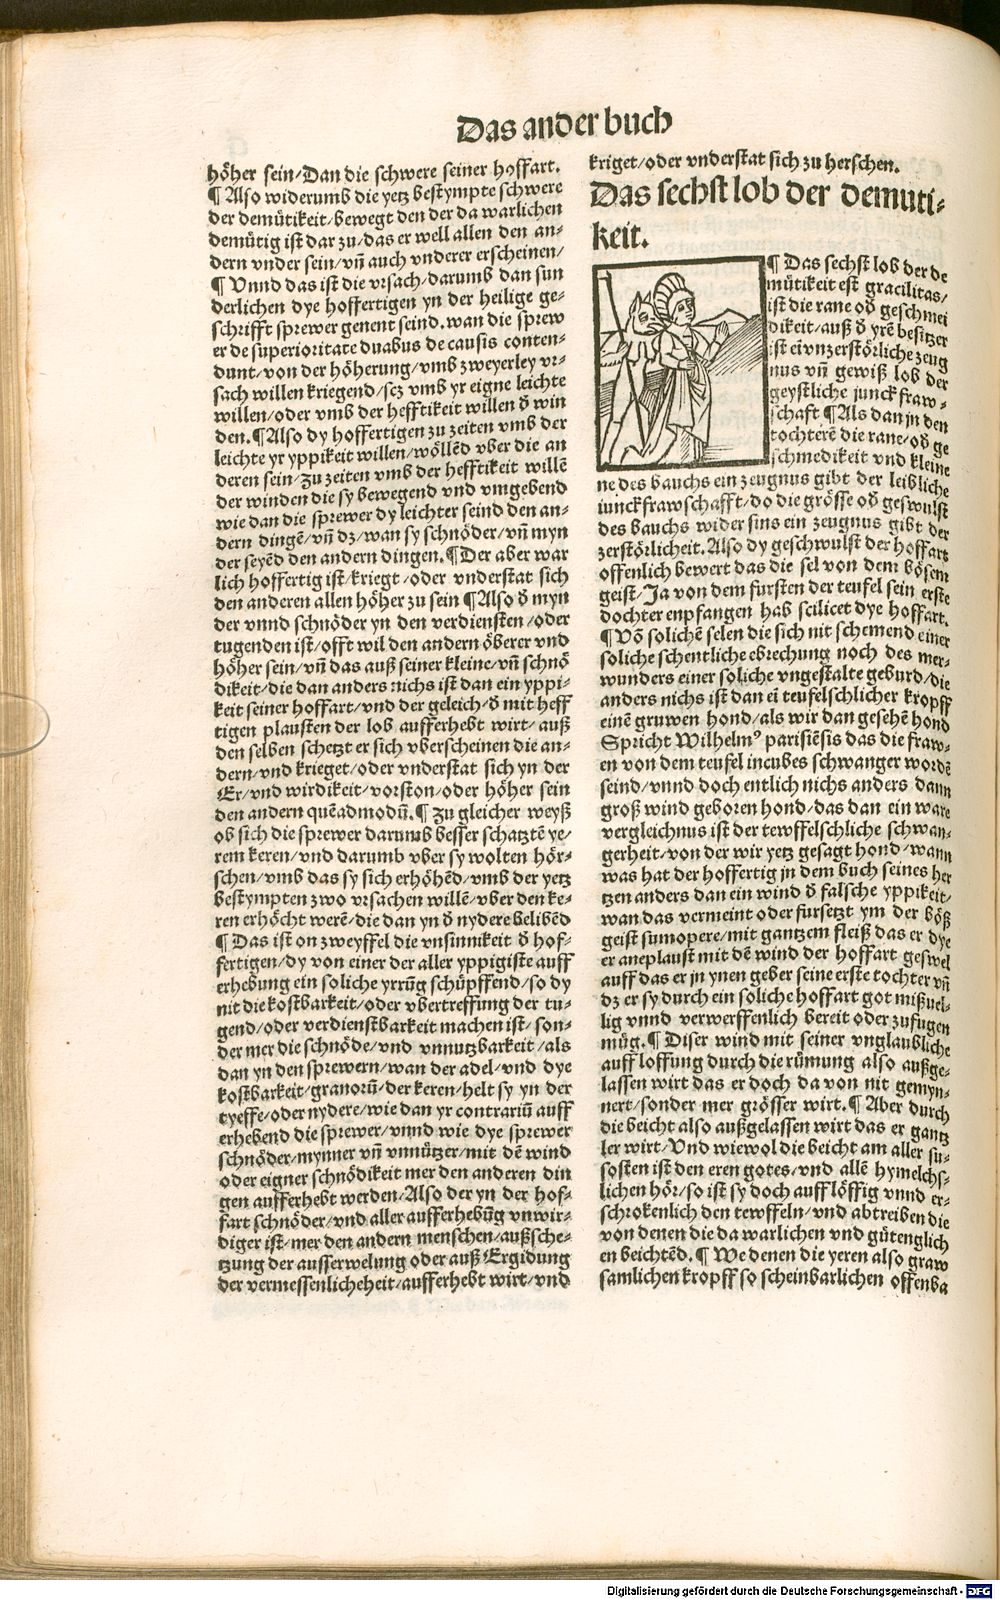 Das ander buch
höher sein/Dan die schwere seiner hoffart.
¶ Also widerumb die yetz bestympte schwere
der demütikeit/bewegt den der da warlichen
demütig ist dar zu/das er well allen den an⸗
dern vnder sein/vn̄ auch vnderer erscheinen/
¶ Vnnd das ist die vrsach/darumb dan sun
derlichen dye hoffertigen yn der heilige ge⸗
schrifft sprewer genent seind.wan die sprew
er de superioritate duabus de causis conten⸗
dunt/von der höherung/vmb zweyerley vr⸗
sach willen kriegend/scz vmb yr eigne leichte
willen/oder vmb der hefftikeit willen d̄ win
den.¶Also dy hoffertigen zu zeiten vmb der
leichte yr yppikeit willen/wöllēd vber die an
deren sein/zu zeiten vmb der hefftikeit willē
der winden die sy bewegend vnd vmgebend
wie dan die sprewer dy leichter seind den an⸗
dern dingē/vn̄ dz/wan sy schnöder/vn̄ myn
der seyēd den andern dingen.¶Der aber war
lich hoffertig ist/kriegt/oder vnderstat sich
den anderen allen höher zu sein ¶Also d̄ myn
der vnnd schnöder yn den verdiensten/oder
tugenden ist/offt wil den andern öberer vnd
höher sein/vn̄ das auß seiner kleine/vn̄ schnö
dikeit/die dan anders nichs ist dan ein yppi⸗
keit seiner hoffart/vnd der geleich/d̄ mit heff
tigen plausten der lob aufferhebt wirt/auß
den selben schetzt er sich vberscheinen die an⸗
dern/vnd krieget/oder vnderstat sich yn der
Er/vnd wirdikeit/vorston/oder höher sein
den andern quēadmodū.¶ Zu gleicher weyß
ob sich die sprewer darumb besser schatztē ye⸗
rem keren/vnd darumb vber sy wolten hör⸗
schen/vmb das sy sich erhöhēd/vmb der yetz
bestympten zwo vrsachen willē/vber den ke⸗
ren erhöcht werē/die dan yn d̄ nydere belibēd
¶ Das ist on zweyffel die vnsinnikeit d̄ hof⸗
fertigen/dy von einer der aller yppigiste auff
erhebung ein soliche yrrūg schüpffend/so dy
nit die kostbarkeit/oder vbertreffung der tu⸗
gend/oder verdienstbarkeit machen ist/son⸗
der mer die schnöde/vnd vnnutzbarkeit/als
dan yn den sprewern/wan der adel/vnd dye
kostbarkeit/granorū/der keren/helt sy yn der
tyeffe/oder nydere/wie dan yr contrariū auff
erhebend die sprewer/vnnd wie dye sprewer
schnöder/mynner vn̄ vnnützer/mit dē wind
oder eigner schnödikeit mer den anderen din
gen aufferhebt werden/Also der yn der hof⸗
fart schnöder/vnd aller aufferhebūg vnwir⸗
diger ist/mer den andern menschen/außsche⸗
tzung der ausserwelung oder auß Ergidung
der vermessenlicheheit/aufferhebt wirt/vnd
kriget/oder vnderstat sich zu herschen.
Das sechst lob der demuti⸗
keit.
¶ Das sechst lob der de
mütikeit est gracilitas/
ist die rane od̄ geschmei
dikeit/auß d̄ yrē besitzer
ist ei vnzerstörliche zeug
nus vn̄ gewiß lob der
geystliche junckfraw⸗
schaft ¶Als dan jn den
tochterē die rane/od̄ ge
schmedikeit vnd kleine
ne des bauchs ein zeugnus gibt der leibliche
iunckfrawschafft/do die grösse od̄ geswulst
des bauchs wider sins ein zeugnus gibt der
zerstörlicheit.Also dy geschwulst der hoffart
offenlich bewert das die sel von dem bösem
geist/Ja von dem fursten der teufel sein erste
dochter enpfangen hab scilicet dye hoffart.
¶ Vō solichē selen die sich nit schemend einer
soliche schentliche ebrechung noch des mer⸗
wunders einer soliche vngestalte geburd/die
anders nichs ist dan ei teufelschlicher kropff
einē gruwen hond/als wir dan gesehē hond
Spricht Wilhelmꝰ parisiēsis das die fraw⸗
en von dem teufel incubes schwanger wordē
seind/vnnd doch entlich nichs anders dann
groß wind geboren hond/das dan ein ware
vergleichnus ist der tewffelschliche schwan⸗
gerheit/von der wir yetz gesagt hond/wann
was hat der hoffertig jn dem buch seines her
tzen anders dan ein wind d̄ falsche yppikeit/
wan das vermeint oder fursetzt ym der böß
geist sumopere/mit gantzem fleiß das er dye
er aneplaust mit dē wind der hoffart geswel
auff das er jn ynen geber seine erste tochter vn̄
dz er sy durch ein soliche hoffart got mißuel⸗
lig vnnd verwerffenlich bereit oder zufugen
müg.¶ Diser wind mit seiner vnglaubliche
auff loffung durch die rümung also außge⸗
lassen wirt das er doch da von nit gemyn⸗
nert/sonder mer grösser wirt.¶ Aber durch
die beicht also außgelassen wirt das er gantz
ler wirt/Vnd wiewol die beicht am aller su⸗
sosten ist den eren gotes/vnd allē hymelchs⸗
lichen hör/so ist sy doch aufflöffig vnnd er⸗
schrokenlich den tewffeln/vnd abtreiben die
von denen die da warlichen vnd gütenglich
en beichtēd.¶ We denen die yeren also graw
samlichen kropff so scheinbarlichen offenba
Digitalisierung gefördert durch die Deutsche Forschungsgemeinschaft - DFG